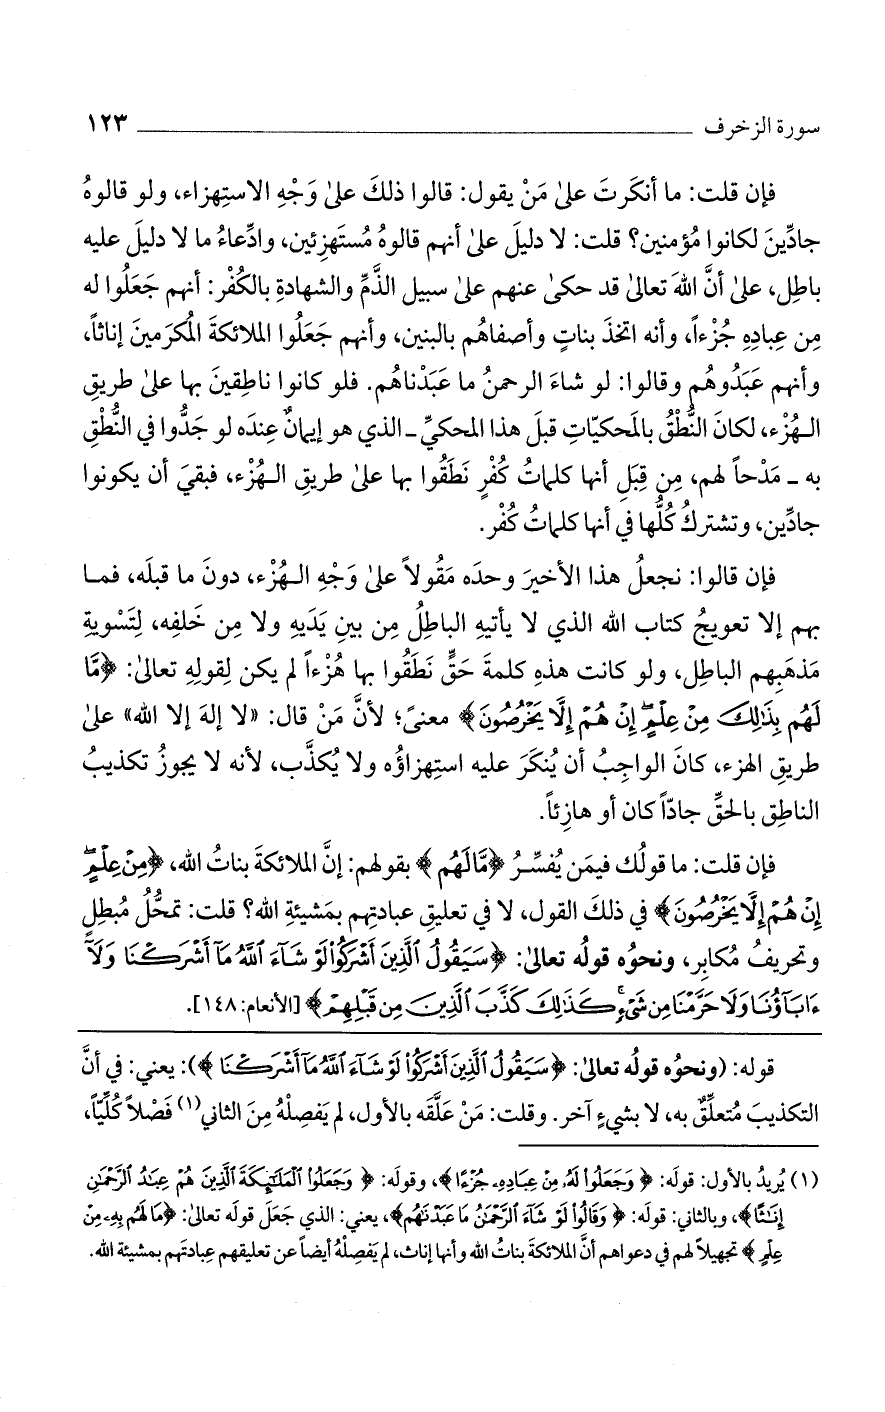 سورة الزخرف ــــــــــــــــــــ ١٢٣
فإن قلت: ما أنكَرتَ علىٰ مَنْ يقول: قالوا ذلكَ علىٰ وَجْهِ الاستِهزاء، ولو قالوهُ
جادِّينَ لكانوا مُؤمنين؟ قلت: لا دليلَ علىٰ أنهم قالوهُ مُستَهزِئين، وادِّعاءُ ما لا دليلَ عليه
باطِل، علىٰ أنَّ اللهَ تعالىٰ قد حكىٰ عنهم علىٰ سبيل الذَّمِّ والشهادةِ بالكُفْر: أنهم جَعَلُوا له
مِن عِبادِهِ جُزْءاً، وأنه اتخذَ بناتٍ وأصفاهُم بالبنين، وأنهم جَعَلُوا الملائكةَ المُكرَمينَ إناثاً،
وأنهم عَبَدُوهُم وقالوا: لو شاءَ الرحمنُ ما عَبَدْناهُم. فلو كانوا ناطِقينَ بها علىٰ طريقِ
الـهُزْء، لكانَ النُّطْقُ بالمَحكيّاتِ قبلَ هذا المحكيِّ ـ الذي هو إيمانٌ عِندَه لو جَدُّوا في النُّطْقِ
به ـ مَدْحاً لهم، مِن قِبَلِ أنها كلماتُ كُفْرٍ نَطَقُوا بها علىٰ طريقِ الـهُزْء، فبقيَ أن يكونوا
جادِّين، وتشتركُ كُلُّها في أنها كلماتُ كُفْر.
فإن قالوا: نجعلُ هذا الأخيرَ وحدَه مَقُولاً علىٰ وَجْهِ الـهُزْء، دونَ ما قبلَه، فمـا
بهم إلا تعويجُ كتاب الله الذي لا يأتيهِ الباطِلُ مِن بينِ يَدَيهِ ولا مِن خَلفِه، لِتَسْويةِ
مَذهَبِهم الباطِل، ولو كانت هذهِ كلمةَ حَقٍّ نَطَقُوا بها هُزْءاً لم يكن لِقولِهِ تعالىٰ: ﴿مَّا
لَهُم بِذَٰلِكَ مِنْ عِلْمٍ ۖ إِنْ هُمْ إِلَّا يَخْرُصُونَ﴾ معنىً؛ لأنَّ مَنْ قال: «لا إلهَ إلا الله» علىٰ
طريقِ الهزء، كانَ الواجِبُ أن يُنكَرَ عليه استِهزاؤُه ولا يُكذَّب، لأنه لا يجوزُ تكذيبُ
الناطِق بالحقِّ جادّاً كان أو هازِئاً.
فإن قلت: ما قولُك فيمَن يُفسِّـرُ ﴿مَّا لَهُم﴾ بقولهم: إنَّ الملائكةَ بناتُ الله، ﴿مِنْ عِلْمٍ ۖ
إِنْ هُمْ إِلَّا يَخْرُصُونَ﴾ في ذلكَ القول، لا في تعليقِ عبادتِهم بمَشيئةِ الله؟ قلت: تمحُّلُ مُبطِلٍ
وتحريفُ مُكابِر، ونحوُه قولُه تعالىٰ: ﴿سَيَقُولُ ٱلَّذِينَ أَشْرَكُوا۟ لَوْ شَآءَ ٱللَّهُ مَآ أَشْرَكْنَا وَلَآ
ءَابَآؤُنَا وَلَا حَرَّمْنَا مِن شَىْءٍ ۚ كَذَٰلِكَ كَذَّبَ ٱلَّذِينَ مِن قَبْلِهِمْ﴾ [الأنعام: ١٤٨].
قوله: (ونحوُه قولُه تعالىٰ: ﴿سَيَقُولُ ٱلَّذِينَ أَشْرَكُوا۟ لَوْ شَآءَ ٱللَّهُ مَآ أَشْرَكْنَا﴾): يعني: في أنَّ
التكذيبَ مُتعلِّقٌ به، لا بشيءٍ آخر. وقلت: مَنْ عَلَّقَه بالأول، لم يَفصِلْهُ مِنَ الثاني(١) فَصْلاً كُلِّيّاً،
(١) يُريدُ بالأول: قولَه: ﴿وَجَعَلُوا۟ لَهُۥ مِنْ عِبَادِهِۦ جُزْءًا﴾، وقولَه: ﴿وَجَعَلُوا۟ ٱلْمَلَٰٓئِكَةَ ٱلَّذِينَ هُمْ عِبَٰدُ ٱلرَّحْمَٰنِ
إِنَٰثًا﴾، وبالثاني: قولَه: ﴿وَقَالُوا۟ لَوْ شَآءَ ٱلرَّحْمَٰنُ مَا عَبَدْنَٰهُم﴾، يعني: الذي جَعَلَ قولَه تعالىٰ: ﴿مَا لَهُم بِهِۦ مِنْ
عِلْمٍ﴾ تجهيلاً لهم في دعواهم أنَّ الملائكةَ بناتُ الله وأنها إناث، لم يَفصِلْهُ أيضاً عن تعليقِهم عِبادتَهم بمشيئة الله.